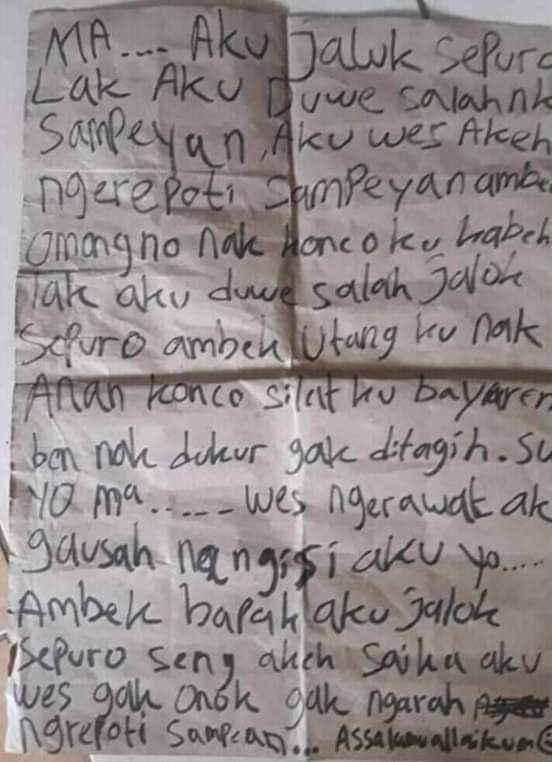 MA.... AKU jaluk sepuro
Lak AKU Duwe salah nk
Sampeyan, Aku wes Akeh
ngerepoti sampeyan ambe
omongno nak koncoku kabeh
lak aku duwe salah jalok
Sepuro ambek Utang ku nak
Anan konco silat ku bayaren
ben nak dukur gak ditagih. Su
YO ma..... wes ngerawat ak
gausah nangisi aku yo....
Ambek bapak aku jalok
Sepuro seng akeh Saika aku
wes gak onok gak ngarah
ngrepoti sampean... Assalamuallaikum